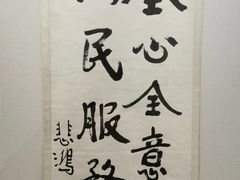 全心全意
为民服务
悲鸿